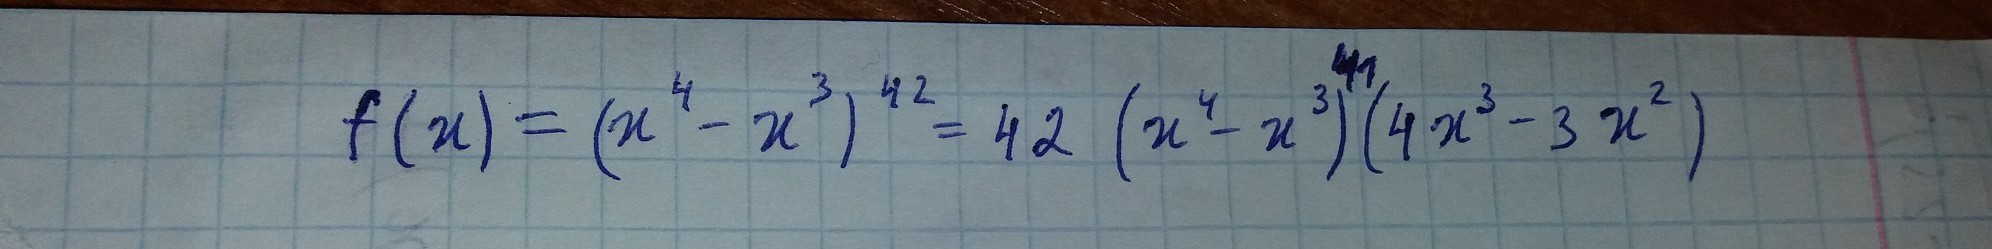 f(x) = (x⁴ - x³)⁴² = 42 (x⁴ - x³)⁴¹(4x³ - 3x²)